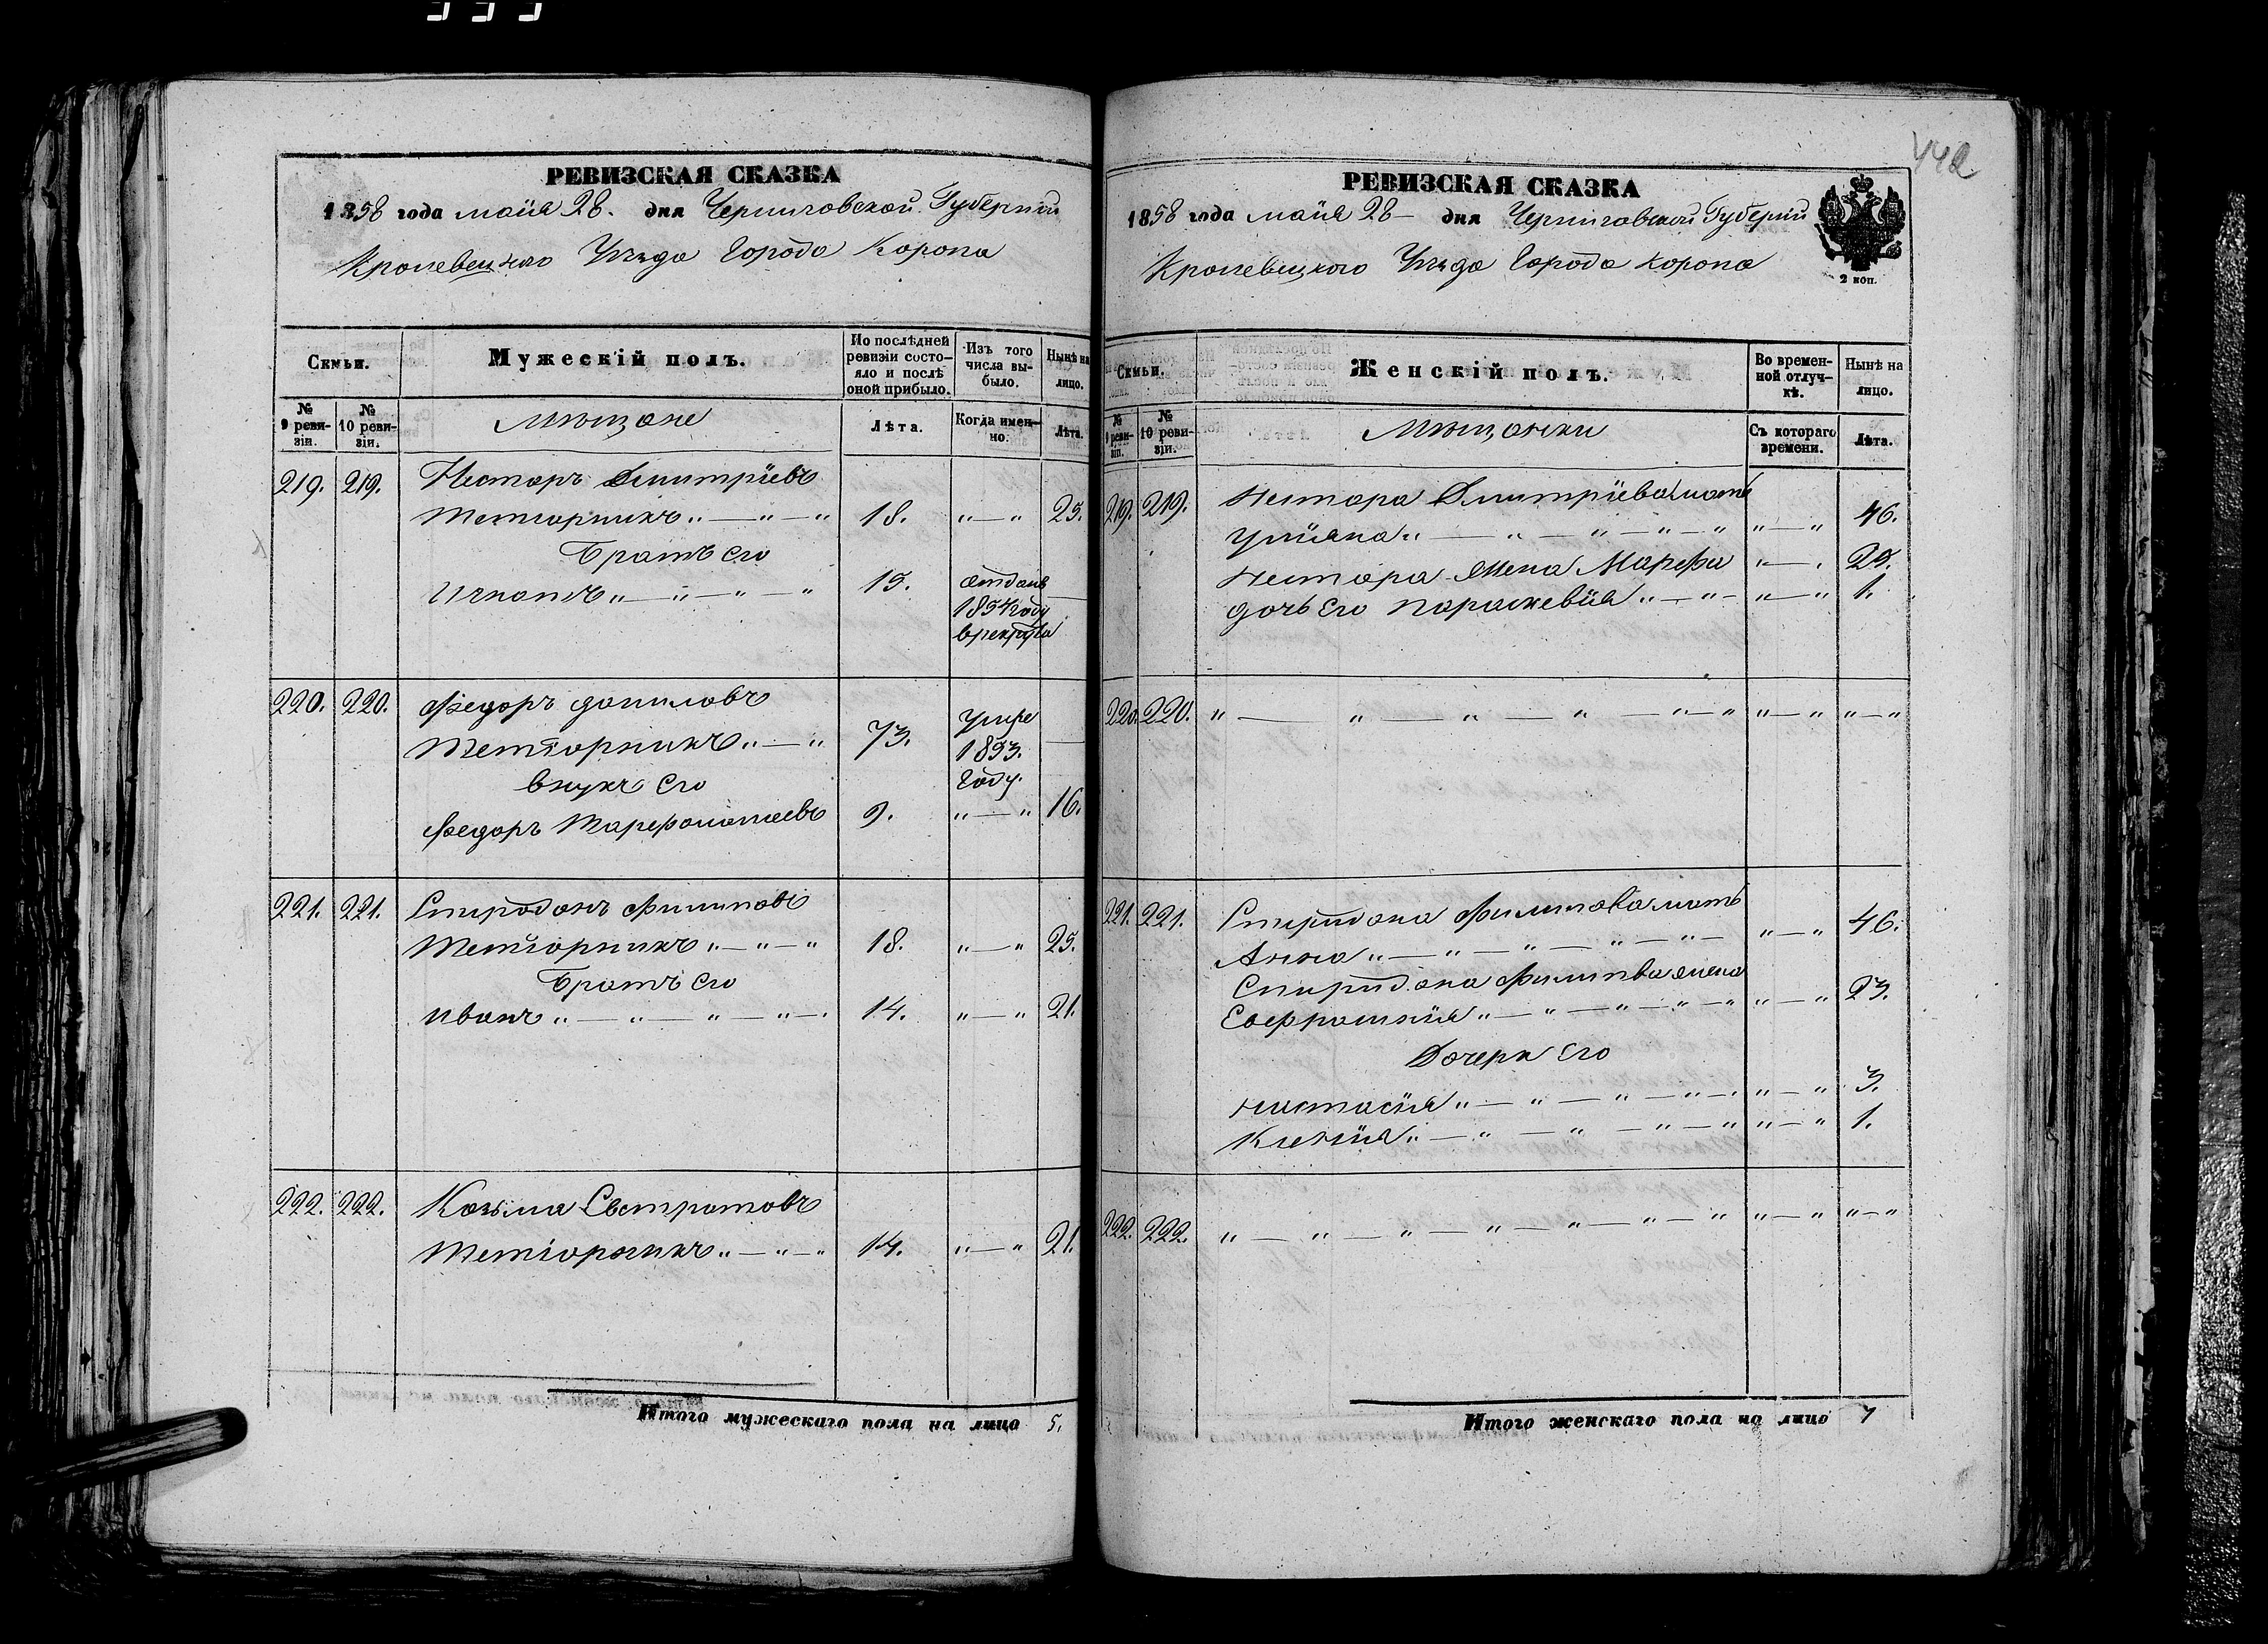 442
РЕВИЗСКАЯ СКАЗКА
1858 года маія 28. дня Черниговской Губерніи
Кролевецкого Уѣзда Города Коропа
Семьи.
Мужескій полъ.
По послѣдней ревизіи состояло и послѣ оной прибыло.
Изъ того числа выбыло.
Нынѣ на лицо.
№ 9 ревизіи.
№ 10 ревизіи.
Мѣщане
Лѣта.
Когда именно.
Лѣта.
219. 219. Несторъ Дмитріевъ
Тетіорникъ „—„—„ 18. „—„ 25.
Братъ его
Игнатъ „—„—„—„ 15. отданъ —
1854 году
в рекруты
220. 220. Федоръ Даниловъ
Тетіорникъ „—„ 73. умре —
1853.
году.
внукъ его
Федоръ 9. „—„ 16.
221. 221. Спиридонъ Филиповъ
Тетіорникъ „—„—„ 18. „—„ 25.
Братъ его
Иванъ „—„—„—„—„ 14. „—„ 21.
222. 222. Козьма Евстратовъ
Тетіорникъ „—„—„ 14. „—„ 21.
Итого мужескаго пола на лицо 5.
РЕВИЗСКАЯ СКАЗКА
1858 года маія 28— дня Черниговской Губерніи
Кролевецкого Уѣзда Города Коропа
2 коп.
Семьи.
Женскій полъ.
Во временной отлучкѣ.
Нынѣ на лицо.
№ 9 ревизіи.
№ 10 ревизіи.
Мѣщанки
Съ котораго времени.
Лѣта.
219. 219. Нестора Дмитріева мать
Уліяна „—„—„—„—„ „—„ 46.
Нестора жена Марфа „—„ 25.
дочь его Параскевія „—„— „—„ 1.
220. 220. „—„—„—„—„—„ „—„ „—„
221. 221. Спиридона Филипова мать
Анна „—„—„—„—„— „—„ 46.
Спиридона Филипва жена
Евфросинія „—„—„—„—„ „—„ 23.
Дочери его
Настасія „—„—„—„—„ „—„ 3.
Ксенія „—„—„—„—„ „—„ 1.
222. 222. „—„—„—„—„—„—„ „—„ „—„
Итого женскаго пола на лицо 7